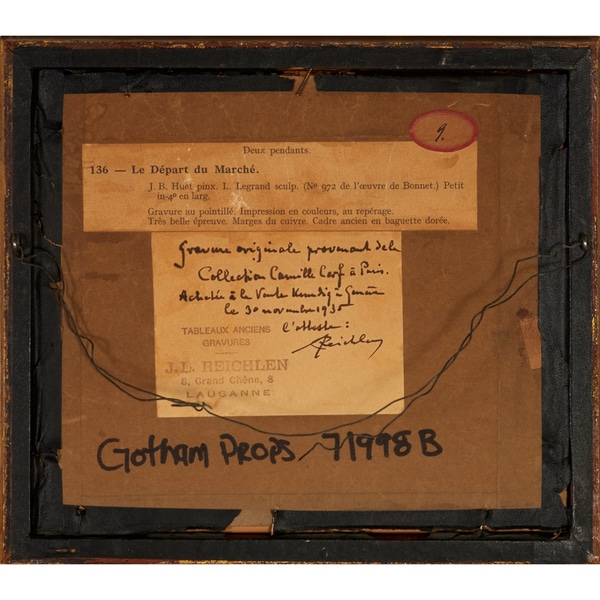 9.
Deux pendants.
136 — Le Départ du Marché.
J. B. Huet pinx. L. Legrand sculp. (Nº 972 de l'œuvre de Bonnet.) Petit
in-4º en larg.
Gravure au pointillé. Impression en couleurs, au repérage.
Très belle épreuve. Marges du cuivre. Cadre ancien en baguette dorée.
Gravure originale provenant de la
Collection Camille à Paris.
Achetée à la Vente Kundig à Genève
le 30 novembre 1935
l'atteste:
Reichlen
TABLEAUX ANCIENS
GRAVURES
J. L. REICHLEN
8, Grand Chêne, 8
LAUSANNE
GOTHAM PROPS 71998B